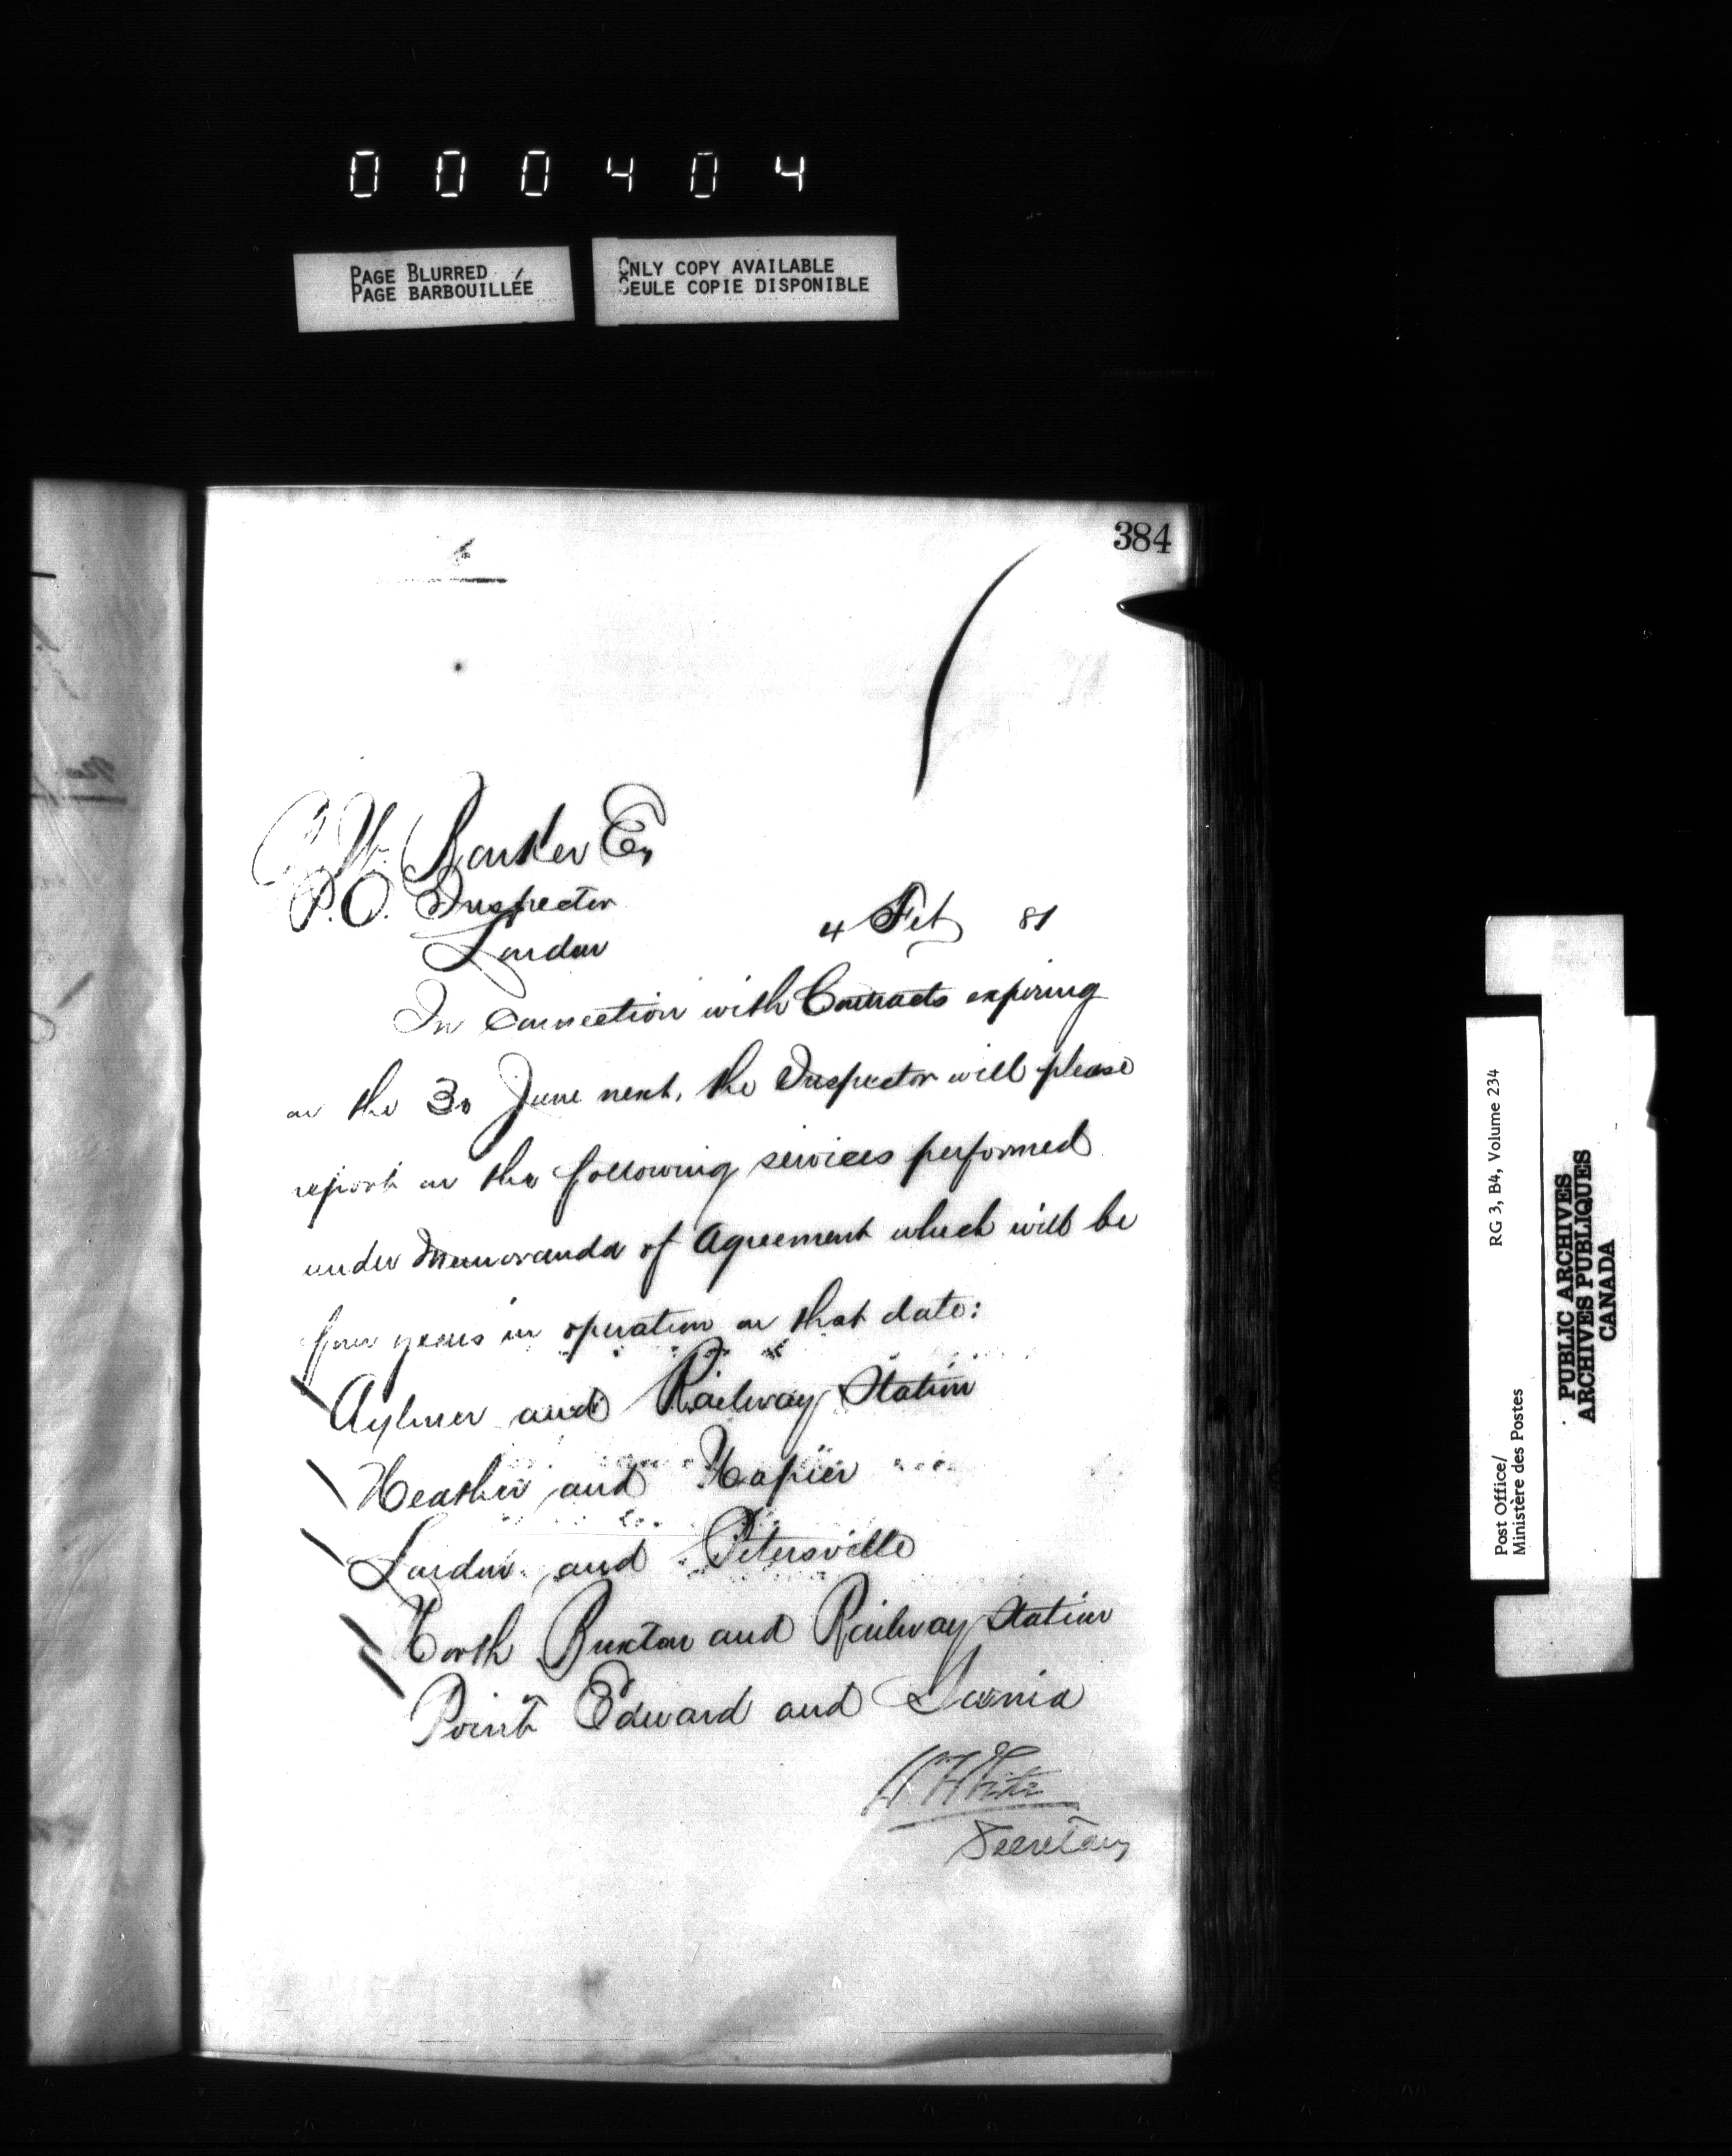 000404
PAGE BLURRED
PAGE BARBOUILLÉE
ONLY COPY AVAILABLE
SEULE COPIE DISPONIBLE
384
W. Barker Esq
P.O. Inspector
London
4 Feb 81
In connection with Contracts expiring
on the 30 June next, the Inspector will please
report on the following services performed
under Memoranda of Agreement which will be
four years in operation on that date:
Aylmer and Railway Station
Heather and Napier
London and Petersville
North Buxton and Railway Station
Point Edward and Sarnia
W White
Secretary
RG 3, B4, Volume 234
Post Office/
Ministère des Postes
PUBLIC ARCHIVES
ARCHIVES PUBLIQUES
CANADA